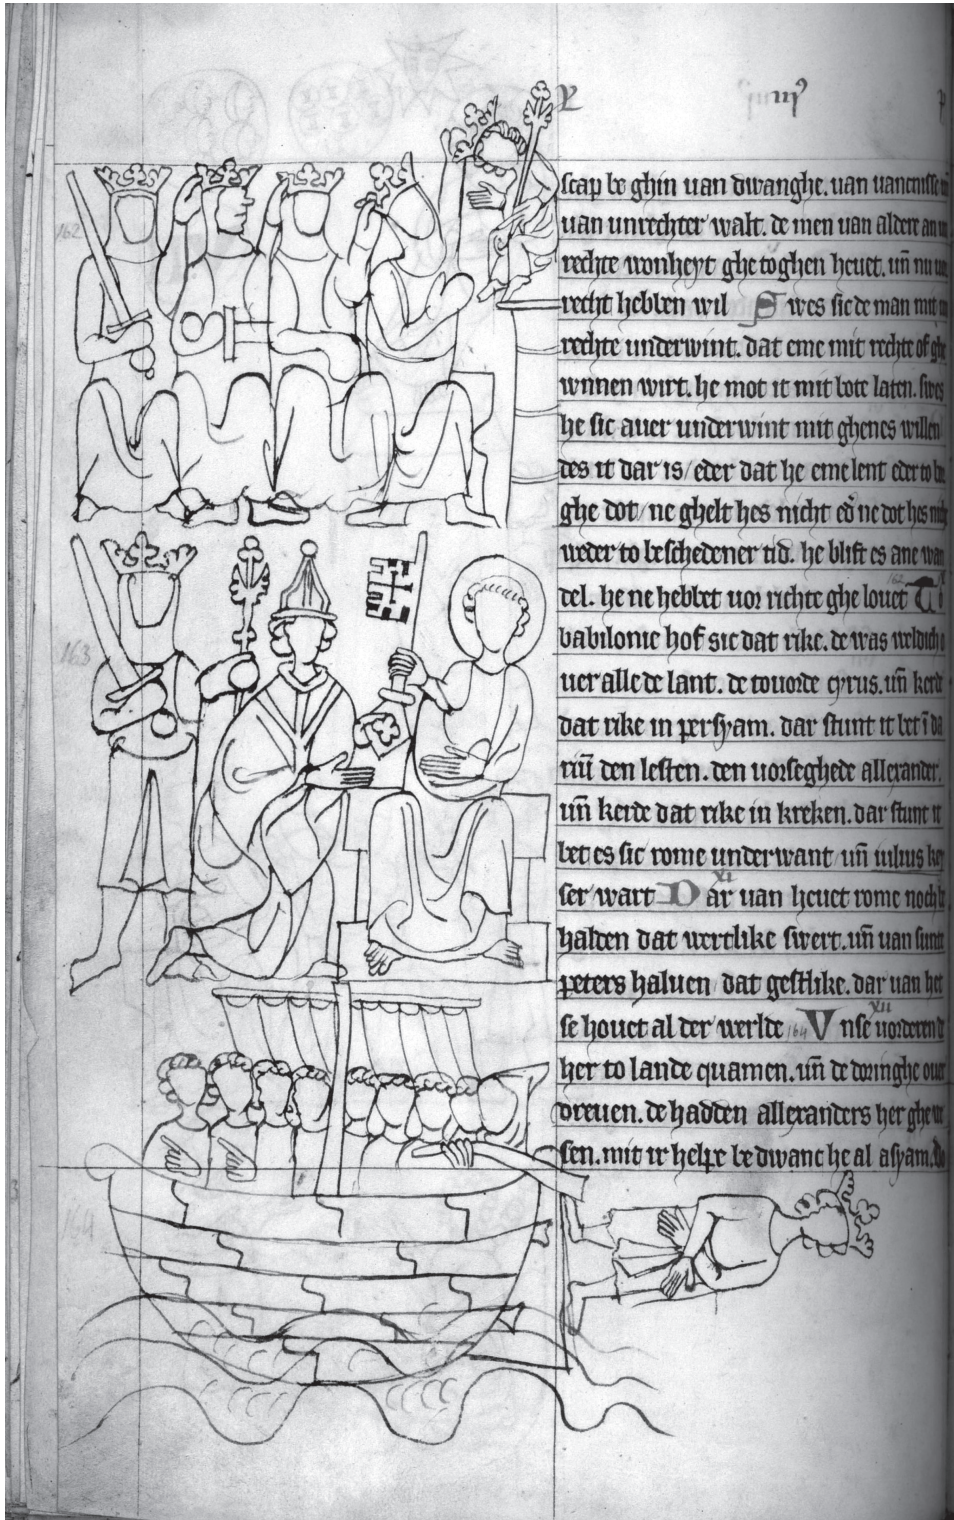 scap be ghin uan dwanghe. uan uancnisse
uan unrechter walt. de men uan aldere an
rechte wonheyt ghetoghen heuet. uñ nu
recht hebben wil Swes sic de man mit
rechte underwint. dat eme mit rechte of ghe
wnnen wirt. he mot it mit bote laten. swes
he sic auer underwint mit ghenes willen
des it dar is / eder dat he eme lent eder to
ghe dot / ne ghelt hes nicht ed' ne dot hes nich
weder to beschedener tid. he blift es ane wan
del. he ne hebbet uor richte ghe louet 162 To
babilonie hof sic dat rike. de was weldich o
uer alle de lant. de touorde cyrus. uñ kerd
dat rike in persyam. dar stunt it bet ī da
riū den lesten. den uorseghede allexander.
uñ kerde dat rike in kreken. dar stunt it
bet es sic rome underwant uñ iulius key
ser wart XI Dar uan heuet rome noch be
halden dat wertlike swert. uñ uan sunte
peters haluen dat gestlike. dar uan het
se houet al der werlde 164 XII Vnse uorderen de
her to lande quamen. uñ de doringhe ouer
dreuen. de hadden allexanders her ghe we
sen. mit ir helpe bedwanc he al asyam. Do
162
163
164